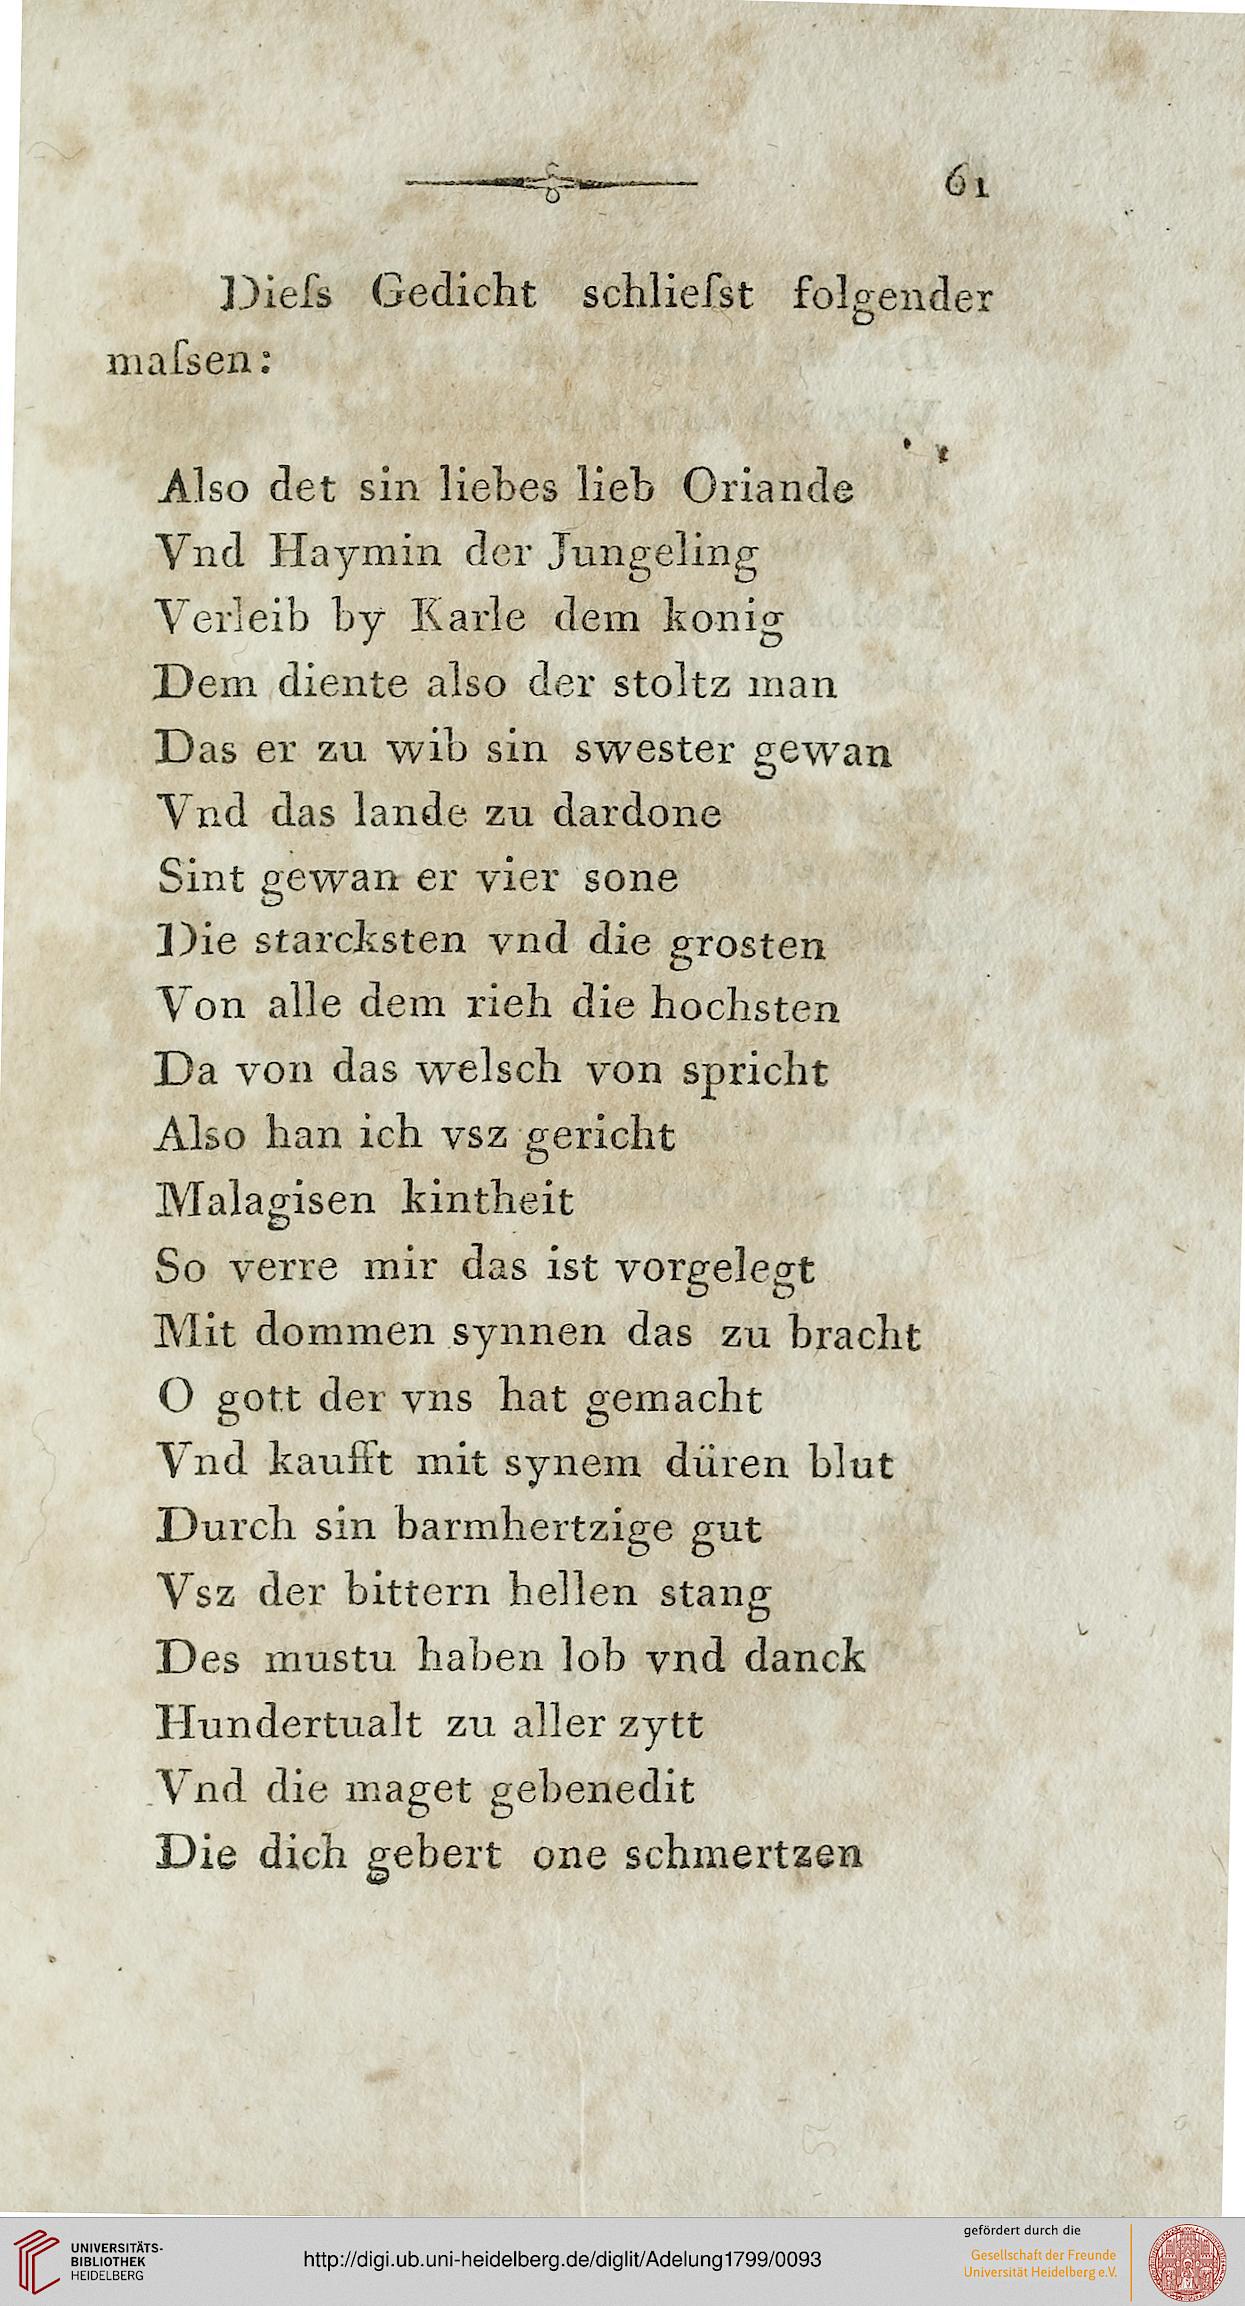 61
Dieſs Gedicht schlieſst folgender
maſsen:
Also det sin liebes lieb Oriande
Vnd Haymin der Jungeling
Verleib by Karle dem konig
Dem diente also der stoltz man
Das er zu wib sin swester gewan
Vnd das lande zu dardone
Sint gewan er vier sone
Die starcksten vnd die grosten
Von alle dem rieh die hochsten
Da von das welsch von spricht
Also han ich vsz gericht
Malagisen kintheit
So verre mir das ist vorgelegt
Mit dommen synnen das zu bracht
O gott der vns hat gemacht
Vnd kaufft mit synem düren blut
Durch sin barmhertzige gut
Vsz der bittern hellen stang
Des mustu haben lob vnd danck
Hundertualt zu aller zytt
Vnd die maget gebenedit
Die dich gebert one schmertzen
UNIVERSITÄTS-
BIBLIOTHEK
HEIDELBERG
http://digi.ub.uni-heidelberg.de/diglit/Adelung1799/0093
gefördert durch die
Gesellschaft der Freunde
Universität Heidelberg e.V.